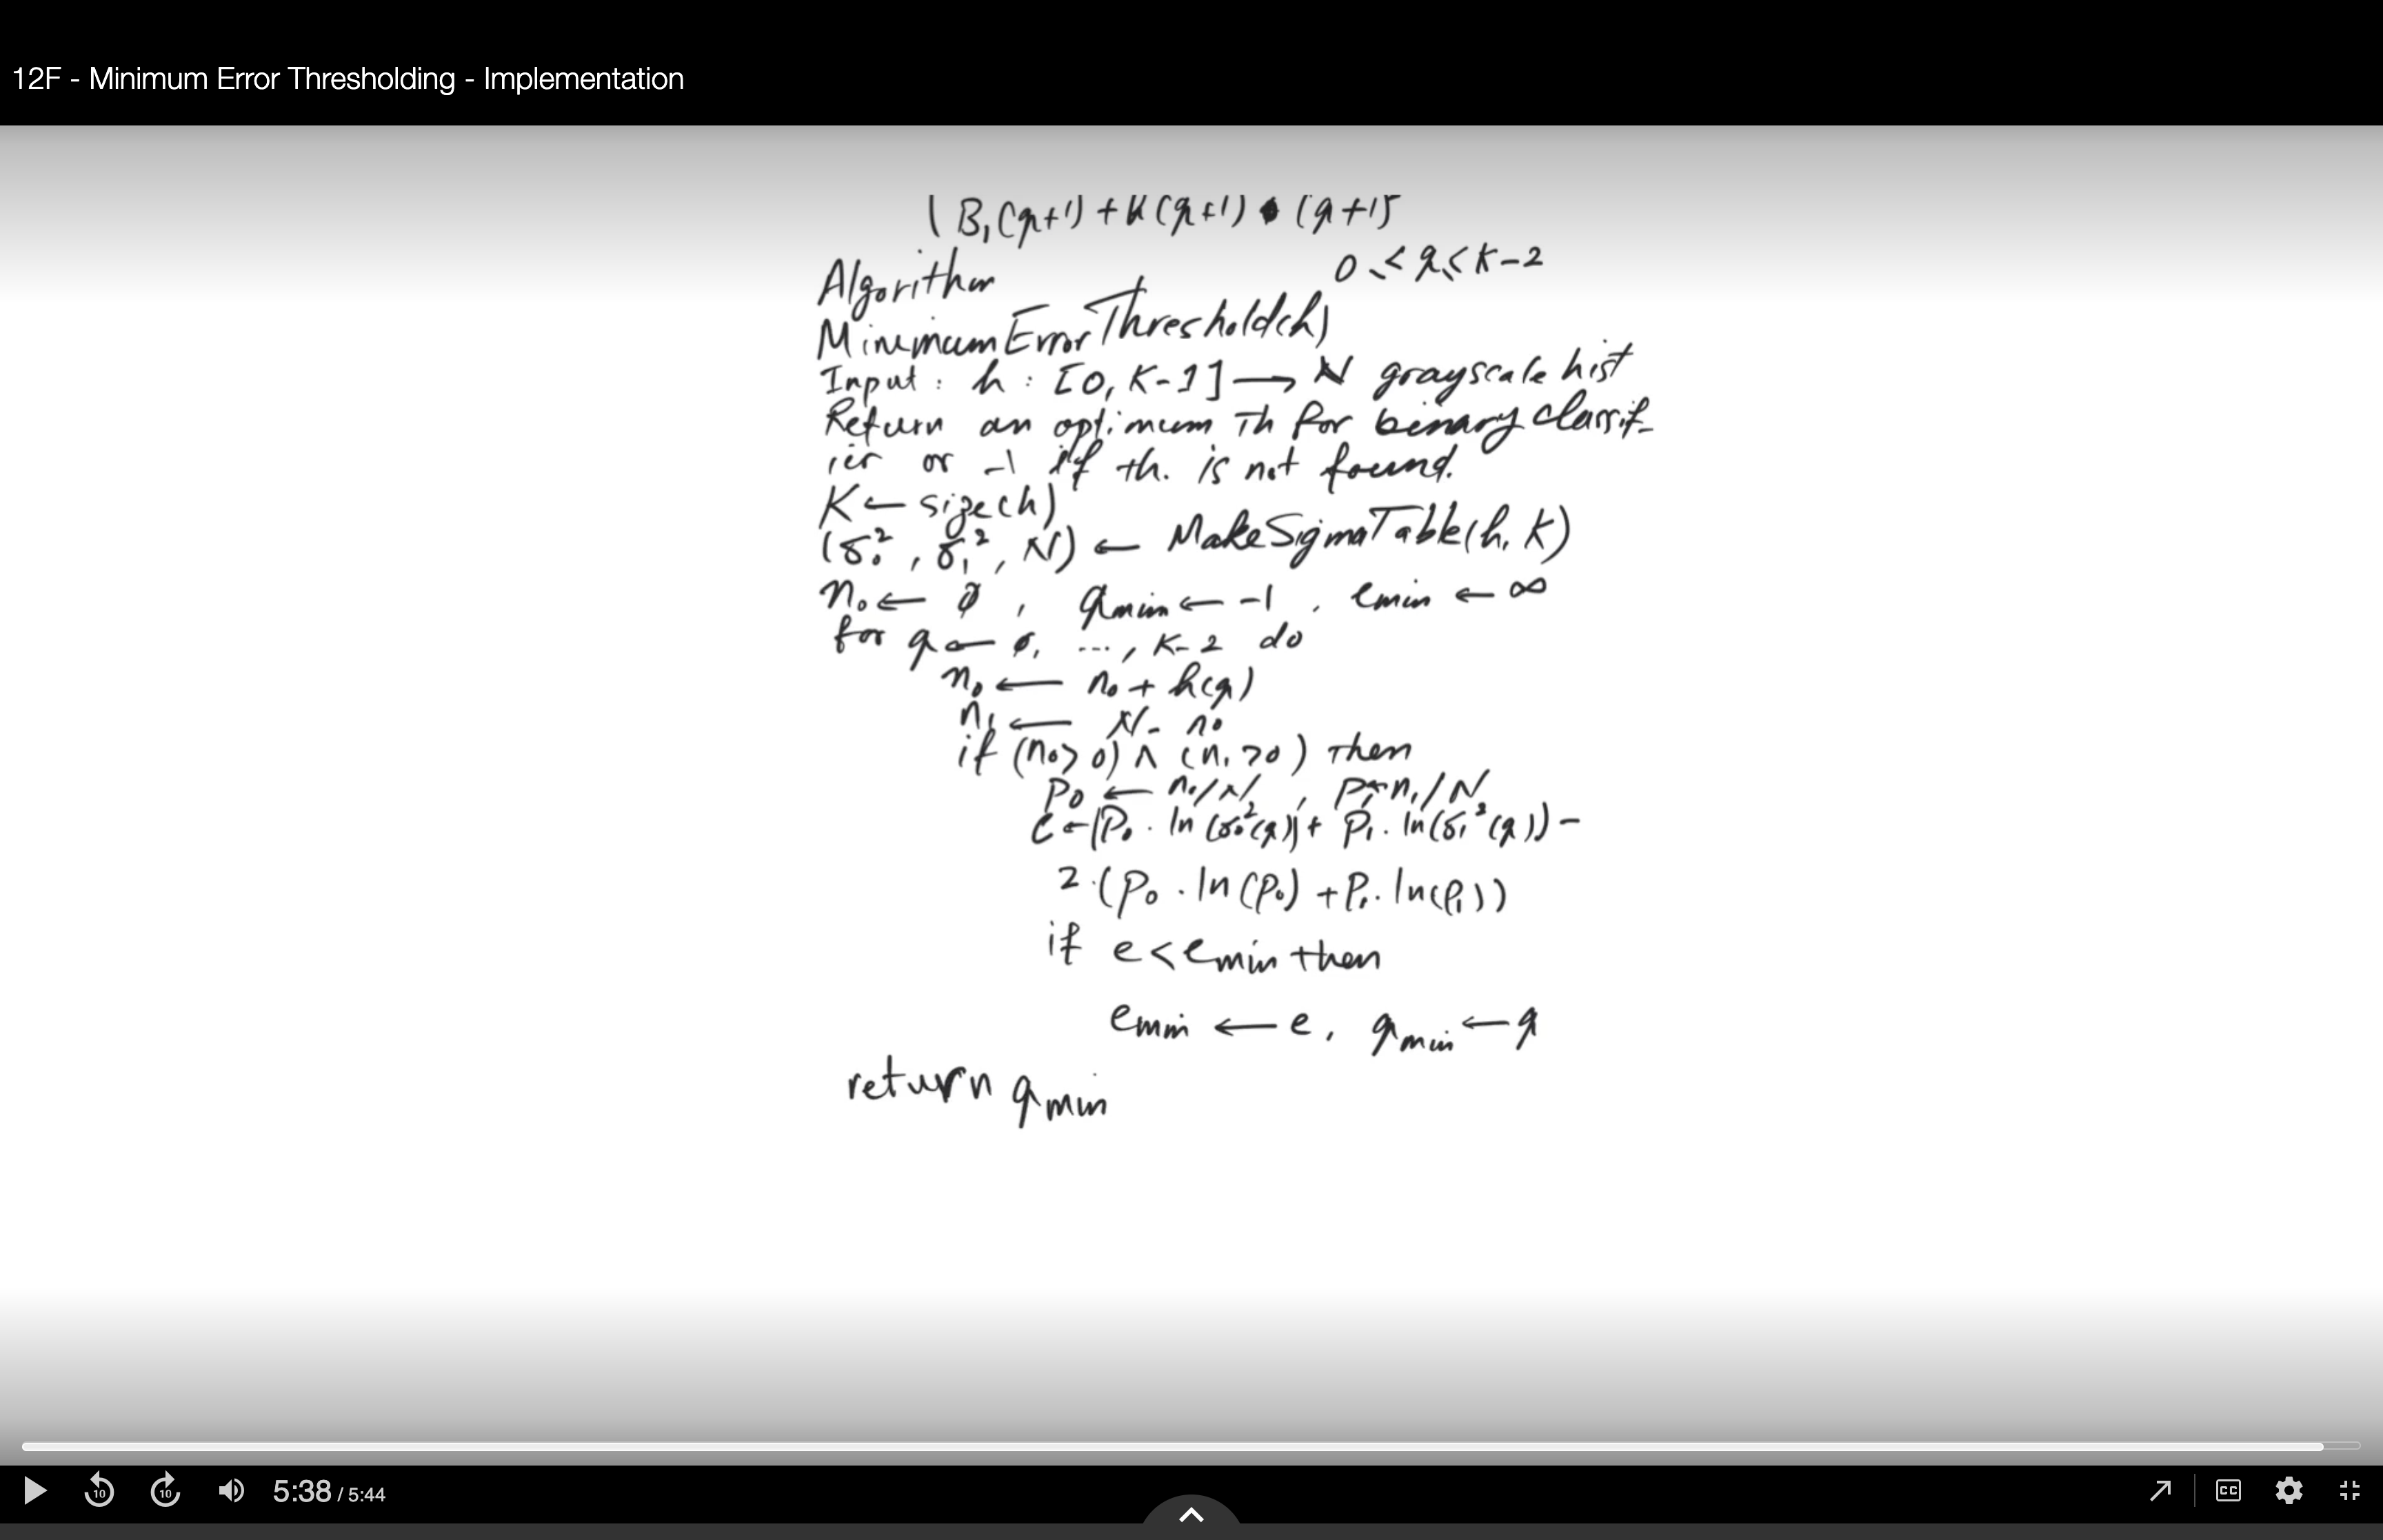 12F - Minimum Error Thresholding - Implementation
( B₁(q+1) + K(q+1) • (q+1)
0 ≤ q ≤ K-2
Algorithm
MinimumErrorThreshold(h)
Input : h : [0, K-1] → N grayscale hist
Return an optimum Th for binary classif-
ier or -1 if th. is not found.
K ← size(h)
(σ₀², σ₁², N) ← MakeSigmaTable(h, K)
n₀ ← 0, qmin ← -1, emin ← ∞
for q ← 0, ..., K-2 do
n₀ ← n₀ + h(q)
n₁ ← N - n₀
if (n₀ > 0) ∧ (n₁ > 0) then
P₀ ← n₀/N, P₁ ← n₁/N
e ← (P₀ · ln(σ₀²(q)) + P₁ · ln(σ₁²(q)) -
2 · (P₀ · ln(P₀) + P₁ · ln(P₁))
if e < emin then
emin ← e, qmin ← q
return qmin
10 10 5:38 / 5:44 CC